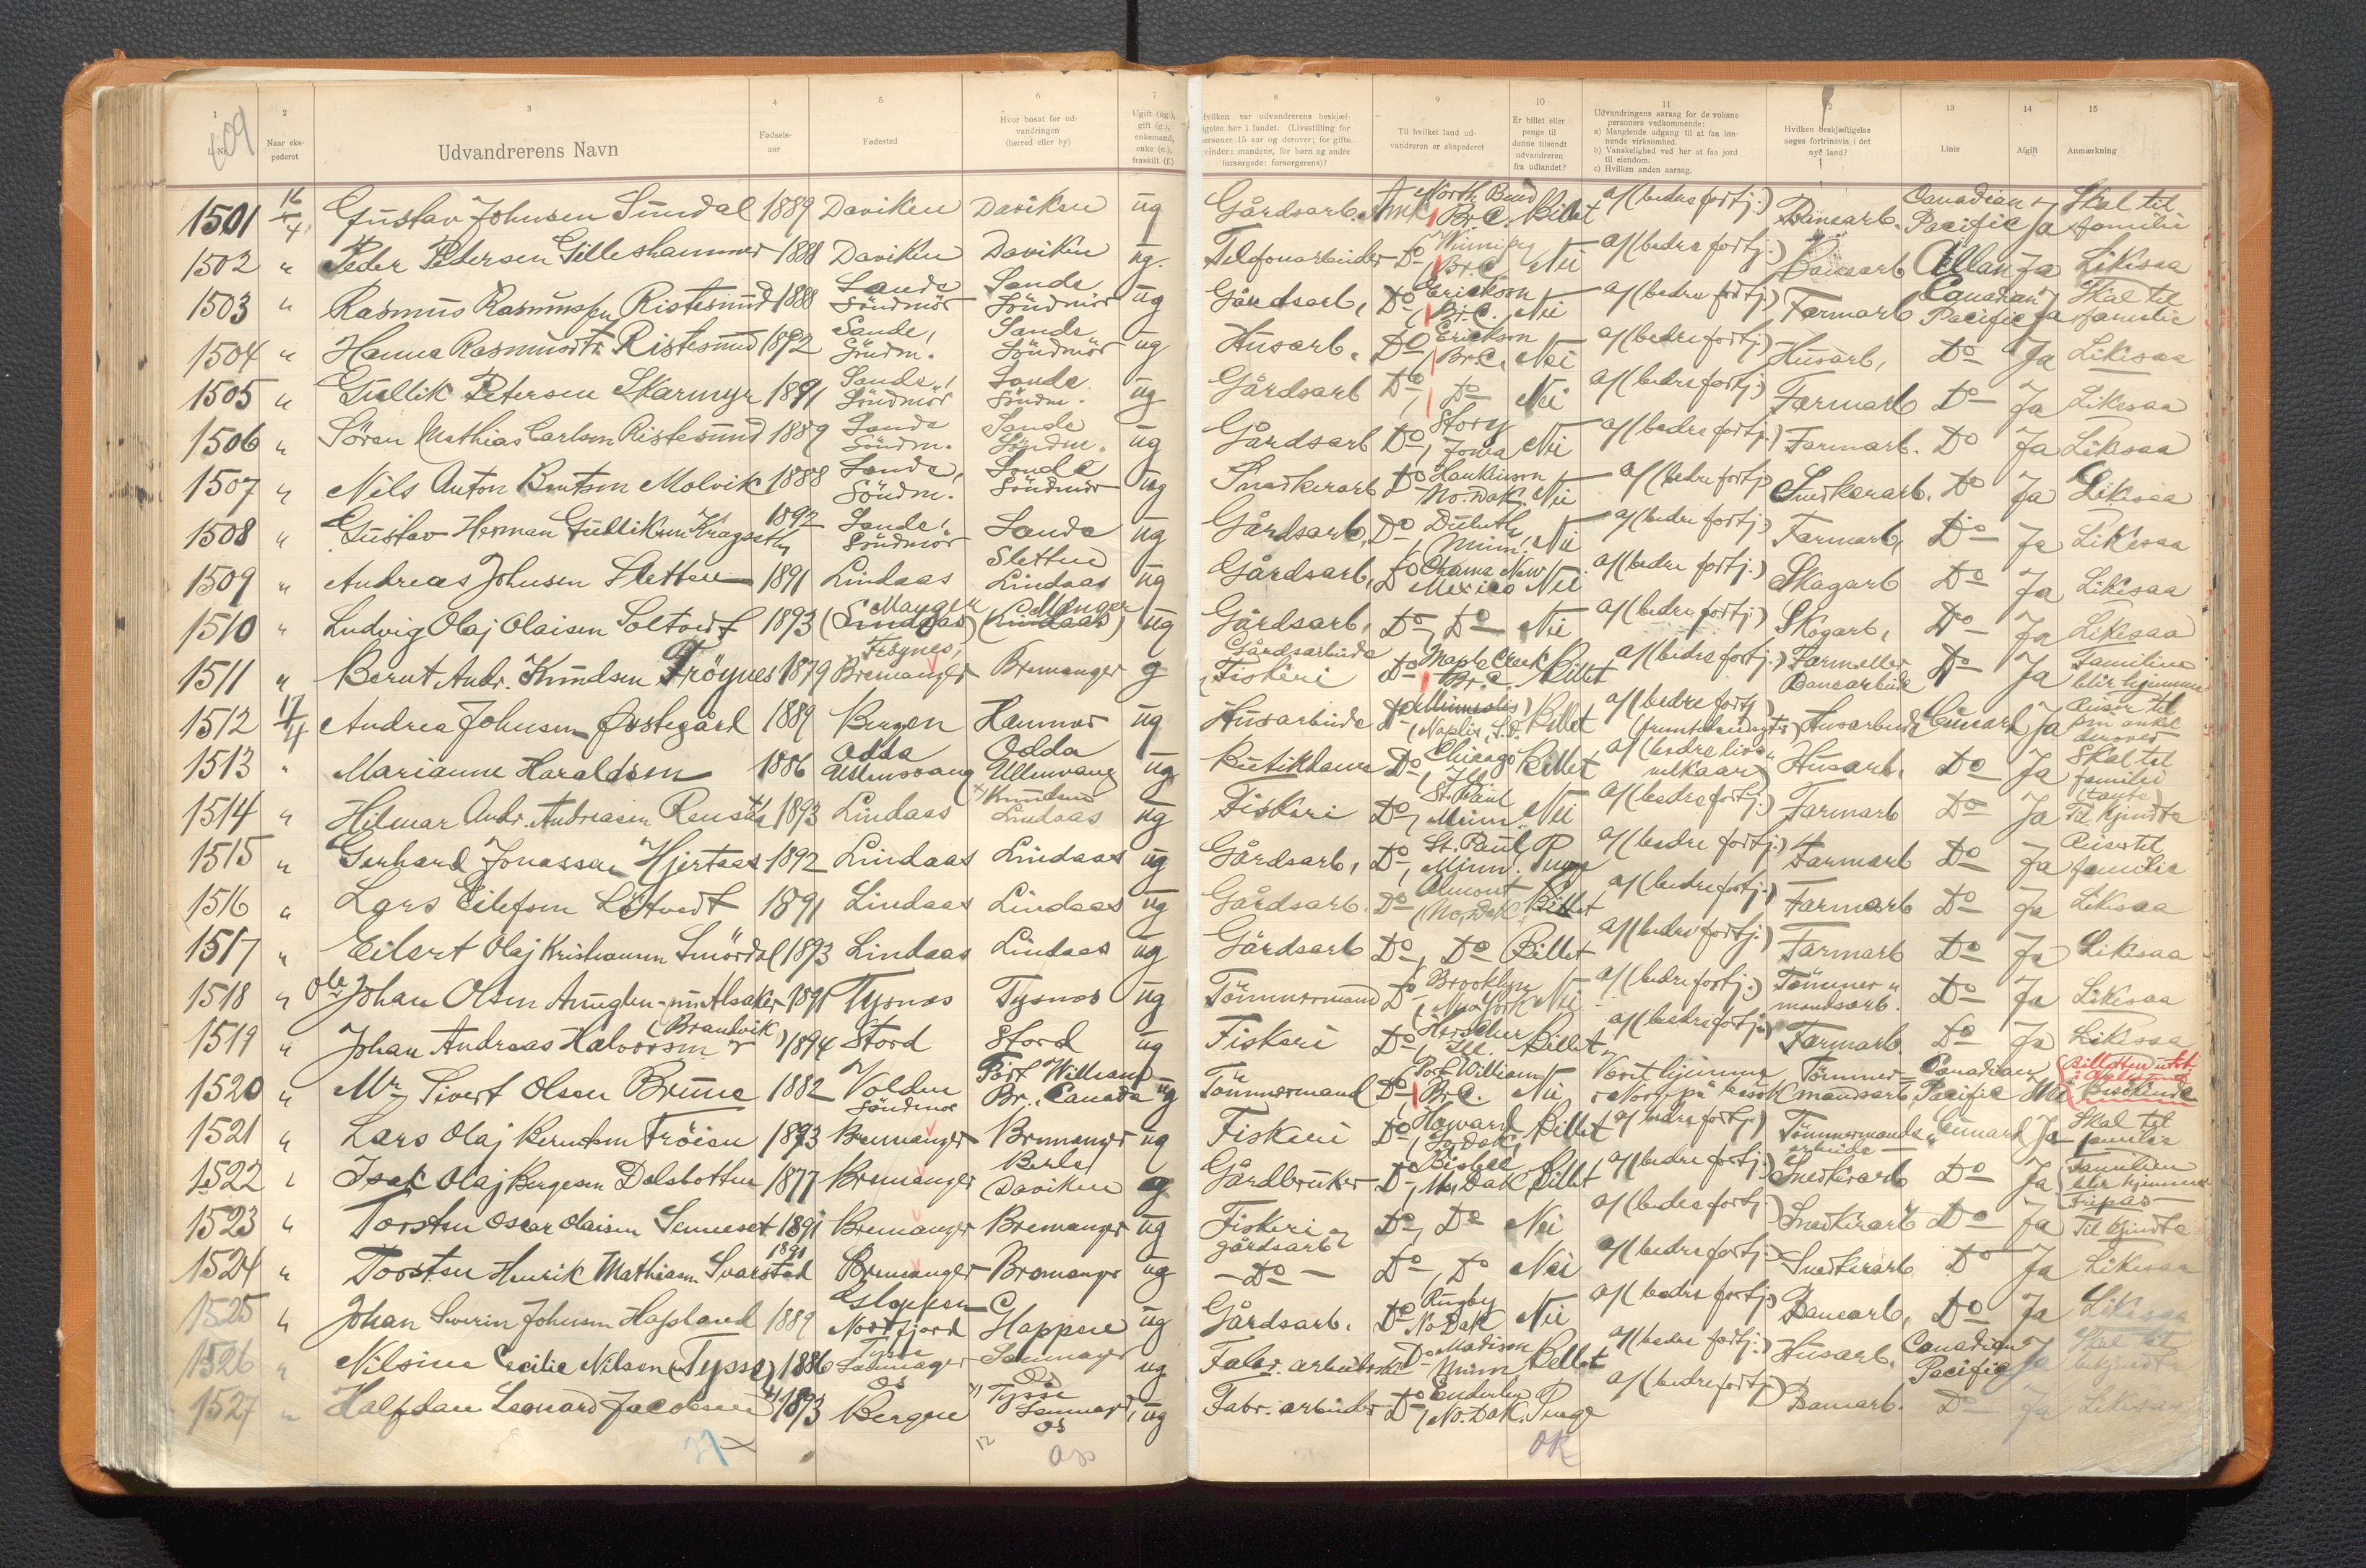 1 2 3 4 5 6 7 8 9 10 11 12 13 14 15
109
L.-Nr. Naar eks-pederet Udvandrerens Navn Fødsels-aar Fødested Hvor bosat før ud-vandringen (herred eller by) Ugift (ug.), gift (g.), enkemand, enke (e.), fraskilt (f.) Hvilken var udvandrerens beskjæf-tigelse her i landet. (Livsstilling for personer 15 aar og derover; for gifte kvinder: mandens, for børn og andre forsørgede: forsørgerens)? Til hvilket land ud-vandreren er ekspederet Er billet eller penge til denne tilsendt udvandreren fra udlandet? Udvandringens aarsag for de voksne personers vedkommende: a) Manglende adgang til at faa løn-nende virksomhed. b) Vanskelighed ved her at faa jord til eiendom. c) Hvilken anden aarsag. Hvilken beskjæftigelse søges fortrinsvis i det nye land? Linie Afgift Anmærkning
1501 16/4 Gustav Johnsen Sundal 1889 Daviken Daviken ug Gårdsarb. Amk North Bend Br.C. Billet a/(bedre fortj.) Banearb. Canadian Pacific Ja Skal til familie
1502 " Peder Pedersen Gilleshammer 1888 Daviken Daviken ug. Telefonarbeider Do Winnipeg Br.C. Nei a/(bedre fortj.) Banearb Allan Ja Likesaa
1503 " Rasmus Rasmussen Ristesund 1888 Sande Söndmör Sande Söndmör ug Gårdsarb, Do Erickson Br.C. Nei a/(bedre fortj.) Farmarb Canadian Pacific Ja Skal til familie
1504 " Hanna Rasmusdtr Ristesund 1892 Sande, Söndm. Sande Söndmör ug Husarb. Do Erickson Br.C. Nei a/(bedre fortj.) Husarb, Do Ja Likesaa
1505 " Gullik Petersen Skarmyr 1891 Sande, Söndmör Sande Söndm. ug Gårdsarb Do, Do Nei a/(bedre fortj.) Farmarb Do Ja Likesaa
1506 " Sören Mathias Carlsen Ristesund 1889 Sande Söndm. Sande Söndm. ug Gårdsarb Do, Story Jowa Nei a/(bedre fortj.) Farmarb. Do Ja Likesaa
1507 " Nils Anton Bentsen Molvik 1888 Sande, Söndm. Sande Söndmör ug Snedkerarb Do Hankinson No.Dak. Nei a/(bedre fortj.) Snedkerarb. Do Ja Likesaa
1508 " Gustav Herman Gulliksen Kragseth 1892 Sande, Söndmör Sande ug Gårdsarb, Do Duluth, Minn. Nei a/(bedre fortj.) Farmarb, Do Ja Likesaa
1509 " Andreas Johnsen Sletten 1891 Lindaas Sletten Lindaas ug Gårdsarb, Do Chama New Mexico Nei a/(bedre fortj.) Skogarb Do Ja Likesaa
1510 " Ludvig Olaj Olaisen Soltvedt 1893 Manger (Lindaas) Manger (Lindaas) ug Gårdsarb, Do, Do Nei a/(bedre fortj.) Skogarb, Do Ja Likesaa
1511 " Bernt Andr. Knudsen Fröynes 1879 Fröynes, Bremanger Bremanger g Gårdsarbeide Fiskeri Do Maple Creek Br.C. Billet a/(bedre fortj.) Farm eller Banearbeide Do Ja Familien blir hjemme
1512 17/4 Andrea Johnsen Østegård 1889 Bergen Hammer ug Husarbeide Do Naples, S.D. Billet a/(bedre fortj. Husarbeide Cunard Ja Reiser til sin onkel derover
1513 " Marianne Haraldsen 1886 Odda Ullensvang Odda Ullensvang ug Butikdame Do Chicago Ill Billet a/(bedre livsvilkaar) Husarb. Do Ja Skal til familie (tante)
1514 " Hilmar Andr. Andreasen 1893 Lindaas x) Knudsen Lindaas ug Fiskeri Do, St. Paul Minn Nei a/(bedre fortj.) Farmarb Do Ja Til kjendte
1515 " Gerhard Jonassen Hjertaas 1892 Lindaas Lindaas ug Gårdsarb, Do, St. Paul Minn. Penge a/(bedre fortj.) Farmarb Do Ja Reiser til familie
1516 " Lars Eilefsen Löstvedt 1891 Lindaas Lindaas ug Gårdsarb. Do Almont No.Dak. Billet a/(bedre fortj.) Farmarb Do Ja Likesaa
1517 " Eilert Olaj Kristiansen Smördal 1893 Lindaas Lindaas ug Gårdsarb Do, Do Billet a/(bedre fortj.) Farmarb Do Ja Likesaa
1518 " Ole Johan Olsen Alsaker 1891 Tysnes Tysnes ug Tömmermand Do Brooklyn New York Nei a/(bedre fortj.) Tömmermandsarb. Do Ja Likesaa
1519 " Johan Andreas Halvorsen (Brandvik) 1894 Stord Stord ug Fiskeri Do, Herscher Ill. Billet a/(bedre fortj.) Farmarb. Do Ja Likesaa
1520 " Mr Sivert Olsen Brune 1882 Volden Söndmör Fort William Br. Canada ug Tömmermand Do Port William Br.C. Nei Været hjemme i Norge på besök Tömmermandsarb, Canadian Pacific Nei
1521 " Lars Olaj Berntsen Fröisen 1893 Bremanger Bremanger ug Fiskeri Do Howard So.Dak, Billet a/(bedre fortj.) Tömmermandsarbeide Cunard Ja Skal til familie
1522 " Isak Olaj Bergesen Dalsbotten 1877 Bremanger Berle Daviken g Gårdbruker Do, Bisbee No.Dak Billet a/(bedre fortj.) Snedkerarb Do Ja Familien blir hjemme Fripas
1523 " Torsten Oscar Olaisen 1891 Bremanger Bremanger ug Fiskeri og gårdsarb Do, Do Nei a/(bedre fortj. Snedkerarb Do Ja Til kjendte
1524 " Torsten Henrik Mathiasen Svarstad 1891 Bremanger Bremanger ug - Do - Do, Do Nei a/(bedre fortj. Snedkerarb Do Ja Likesaa
1525 " Johan Severin Johnsen Hafsland 1889 Gloppen Nordfjord Gloppen ug Gårdsarb. Do Rugby No.Dak Nei a/(bedre fortj.) Banearb, Do Ja Likesaa
1526 " Nilsine Cecilie Nilsen (Tysse) 1886 Tysse Samnanger Os Samnanger Os ug Fabr. arbeiderske Do Madison Minn Billet a/(bedre fortj.) Husarb. Canadian Pacific Ja Skal til bekjendte
1527 " Halfdan Leonard Jacobsen x) 1893 Bergen x) Tysse Samnanger, Os ug Fabr. arbeider Do Enderlin, No.Dak. Penge a/(bedre fortj.) Banearb. Do Ja Likesaa
27 12 OK